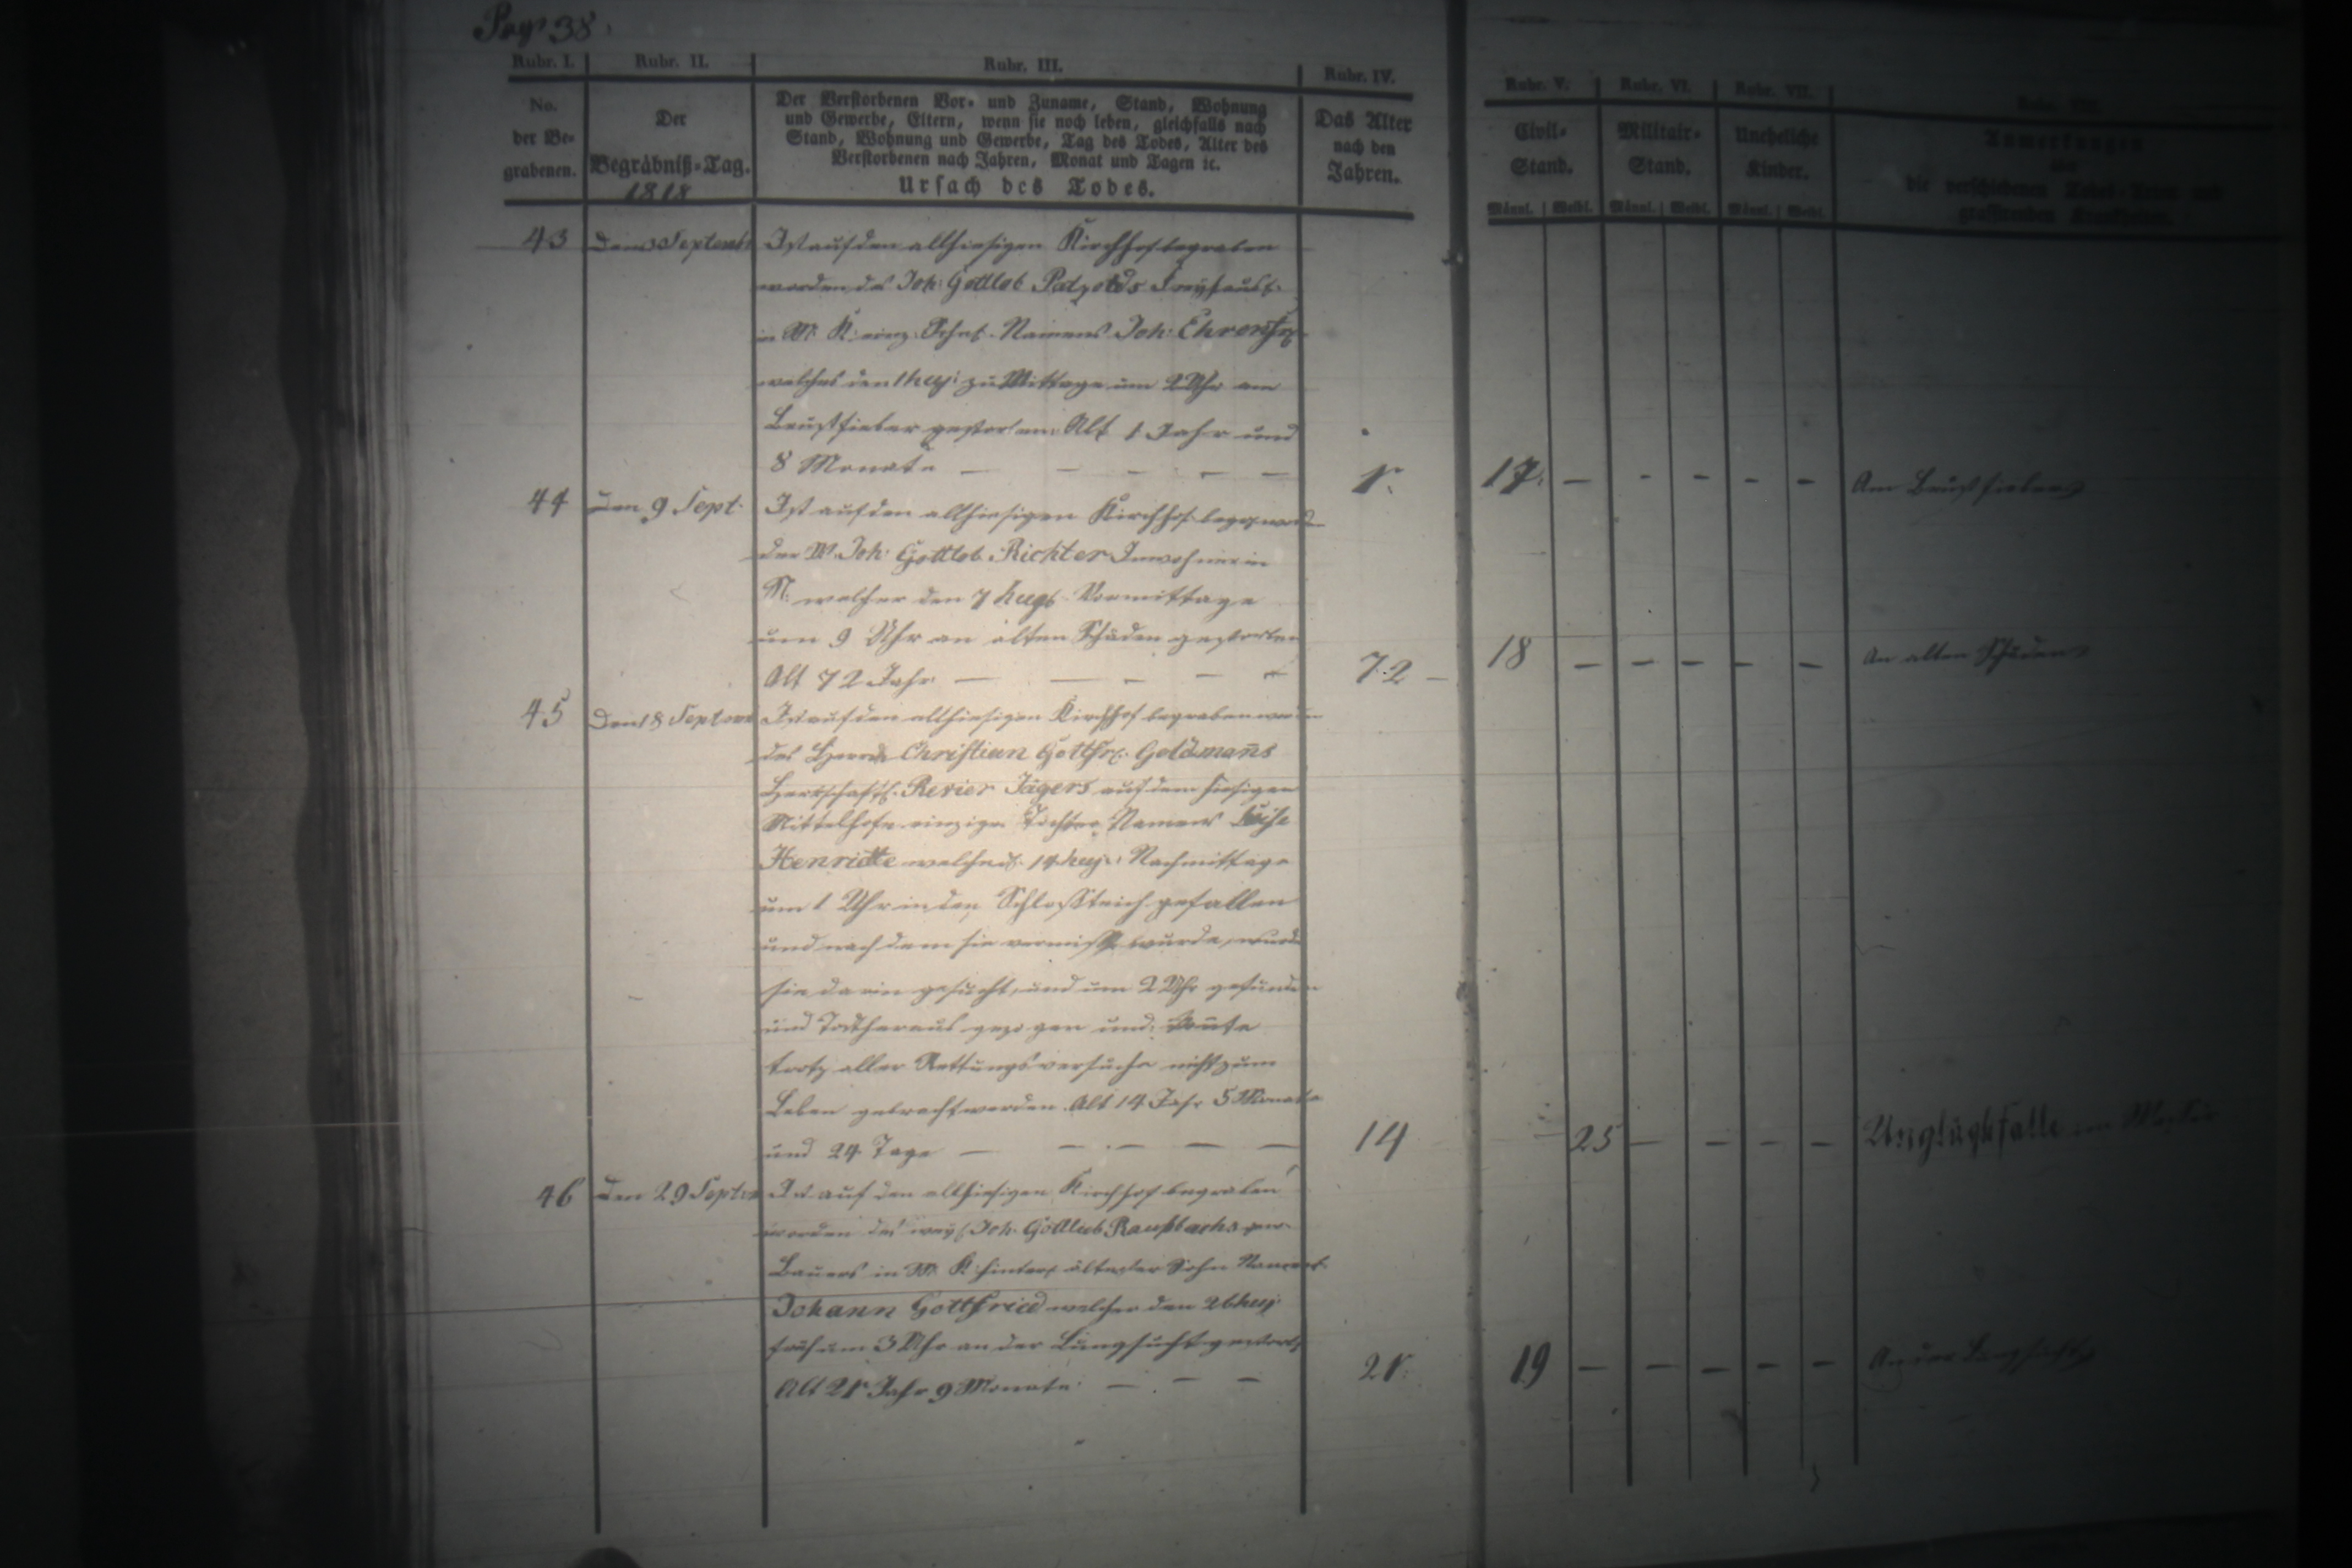 Pag 38.
Rubr. I. Rubr. II. Rubr. III. Rubr. IV. Rubr. V. Rubr. VI. Rubr. VII.
No. der Be-grabenen.
Der Begräbniß-Tag. 1818
Der Verstorbenen Vor- und Zuname, Stand, Wohnung
und Gewerbe, Eltern, wenn sie noch leben, gleichfalls nach
Stand, Wohnung und Gewerbe, Tag des Todes, Alter des
Verstorbenen nach Jahren, Monat und Tagen ꝛc.
Ursach des Todes.
Das Alter nach den Jahren.
Civil-Stand.
Militair-Stand.
Uneheliche Kinder.
Anmerkungen
die verschiedenen Todes-Arten und
grassirenden Krankheiten.
Männl. Weibl. Männl. Weibl. Männl. Weibl.
43 den 3 Septemb Ist auf den allhiesigen Kirchhof begraben
worden des Joh: Gottlob Patzolds Freyhäusl.
in M. K. einz. Namens Joh: Ehrenfr.
welches den 1 huj: zu Mittage um 2 Uhr am
Brustfieber gestorben. Alt 1 Jahr und
8 Monate — — — — — 1. 17. — — — — — Am Brustfieber
44 den 9 Sept. Ist auf den allhiesigen Kirchhof
der Joh: Gottlob Richter Inwohner in
M. welcher den 7 huj. Vormittage
um 9 Uhr an alten Schäden gestorben
Alt 72 Jahr — — — — — 72 — 18 — — — — — An alten Schäden
45 Den 18 Septem Ist auf den allhiesigen Kirchhof begraben worden
des Herrn Christian Gottfr. Goldmans
Herrschaftl. Revier Jägers auf dem hiesigen
Mittelhofe einzige Tochter Namens Luise
Henriette welche d. 14 huj: Nachmittage
um 1 Uhr in den Schloßteich gefallen
und nach dem sie vermißt wurde, wurde
sie darin gesucht, und um 2 Uhr gefunden
und Todt heraus gezogen und konte
trotz aller Rettungsversuche nicht zum
Leben gebracht werden. Alt 14 Jahr 5 Monate
und 24 Tage — — — — — 14 — 25 — — — — Unglücksfalle
46 den 29 Septem Ist auf den allhiesigen Kirchhof begraben
worden des weyl. Joh. Gottlieb Raußbachs gew.
Bauers in M. K. hinterl. ältester Sohn Namens
Johann Gottfried welcher den 26 huj.
früh um 3 Uhr an der Lungsucht gestorb.
Alt 21 Jahr 9 Monate — — — 21. 19 — — — — — An der Lungsucht